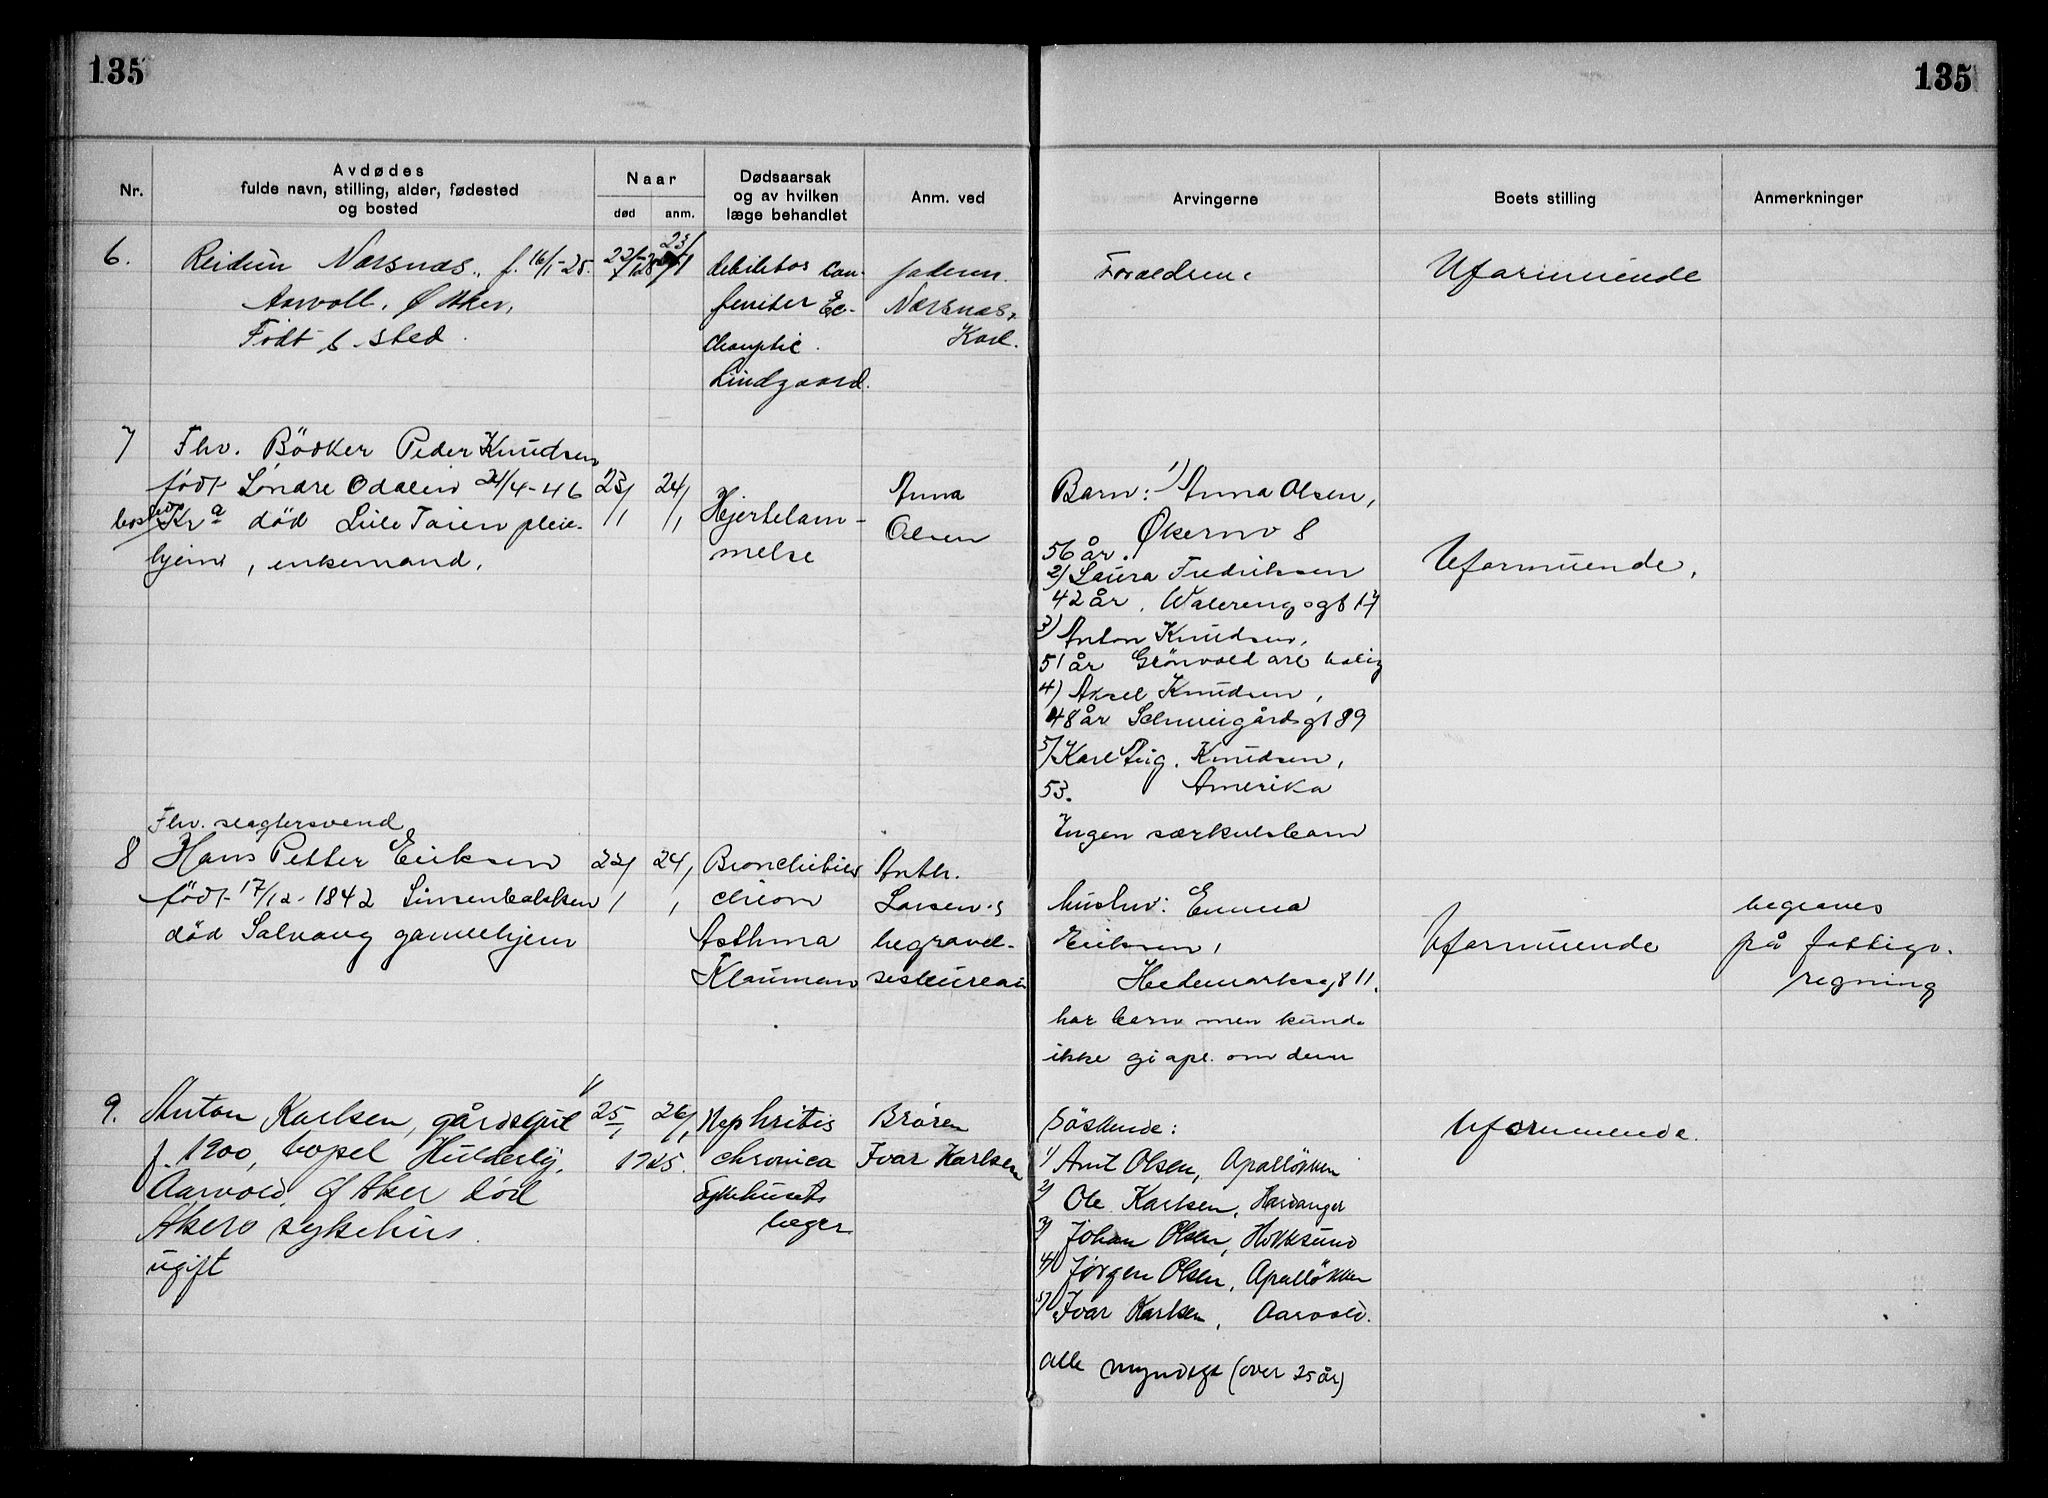 135
135
Nr.
Avdødes
fulde navn, stilling, alder, fødested
og bosted
Naar
død
anm.
Dødsaarsak
og av hvilken
læge behandlet
Anm. ved
Arvingerne
Boets stilling
Anmerkninger
6.
Reidun Næsnæs, f. 16/1-25.
Aarvoll, Ø Aker,
Født s. sted.
23/1
debilitas con-
Lindgaard.
faderen
Næsnæs,
Karl.
Forældrene
Uformuende
7
Fhv. Bödker Peder Knudsen
født Søndre Odalen 24/4-46
Kra død Lille Tøien pleie-
hjem, enkemand.
23/1
24/1
Hjertelam-
melse
Anna
Olsen
Barn: 1) Anna Olsen,
Økernv 8
56 år.
2) Laura Fredriksen
42 år, Walerenggt 17
3) Anton Knudsen,
51 år Grönvold arb bolig
4) Aksel Knudsen,
48 år Schweigårdsgt 89
5) Karl Aug. Knudsen,
53. Amerika
Ingen særkulsbarn
Uformuende,
8
Fhv. slagtersvend
Hans Petter Eriksen
født 17/12-1842
død Solvang gamlehjem
22/1
24/1
Bronchitis
chron
Asthma
Klaumann
Anth.
Larsen's
begravel-
sesbureau
hustru: Emma
Eriksen,
Hedemarksgt 11.
har barn men kunde
ikke gi opl. om dem
Uformuende
begraves
på fattigv.
regning
9.
Anton Karlsen, gårdsgut
f. 1900, bopel
Aarvold, Ø Aker død
Akers sykehus.
ugift
25/1
26/1
1925.
Nephritis
chronica
Sykehusets
læger
Broren
Ivar Karlsen
Söskende:
1) Amt Olsen, Apalløkken
2) Ole Karlsen, Hardanger
3) Johan Olsen, Hokksund
4) Jörgen Olsen, Apalløkken
5) Ivar Karlsen, Aarvold.
alle myndige (over 25 år)
Uformuende.